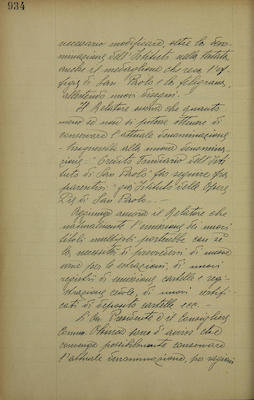 934
necessario modificare, oltre la deno-
minazione dell'Istituto nella testata,
anche il medaglione che reca l'ef-
figie di San Paolo e la filigrana,
allestendo nuovi disegni.
Il Relatore nota che quanto
meno se non si potesse ottenere di
conservare l'attuale denominazione
bisognerebbe alla nuova denomina-
zione: "Credito Fondiario dell'Isti-
tuto di San Paolo" far seguire fra
parentesi: già Istituto delle Opere
Pie di San Paolo.
Aggiunge ancora il Relatore che
naturalmente l'emissione dei nuovi
titoli multipli porterebbe con sè
la necessità di provvedersi di nuove
urne per le estrazioni, di nuovi
registri di emissione cartelle e regi-
strazione cedole, di nuovi certifi-
cati di deposito cartelle ecc.
Il Sig. Presidente e il Consigliere
Comm. sono di avviso che
convenga possibilmente conservare
l'attuale denominazione, per ragioni